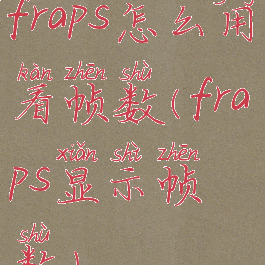 fraps怎么用
kàn zhēn shù
看帧数(fra
xiǎn shì zhēn
ps显示帧
shù
数)